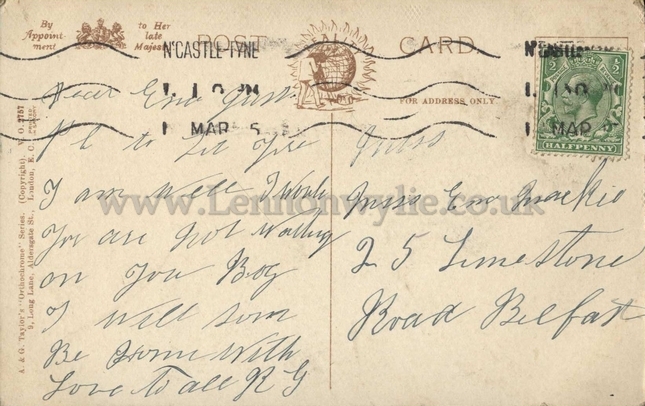 By Appointment
to Her late Majesty
POST CARD.
N'CASTLE-TYNE
1 MAR 5
FOR ADDRESS ONLY.
HALFPENNY
A. & G. Taylor's "Orthochrome" Series. (Copyright). N.O. 2757
9, Long Lane, Aldersgate St., London, E.C.
Dear Ena Just
to Let You
I am Well I
You are not Waiting
on You Boy
I Will soon
Be Home With
Love To all R G
Miss
Miss Ena Mackie
25 Limestone
Road Belfast
www.Lennonwylie.co.uk